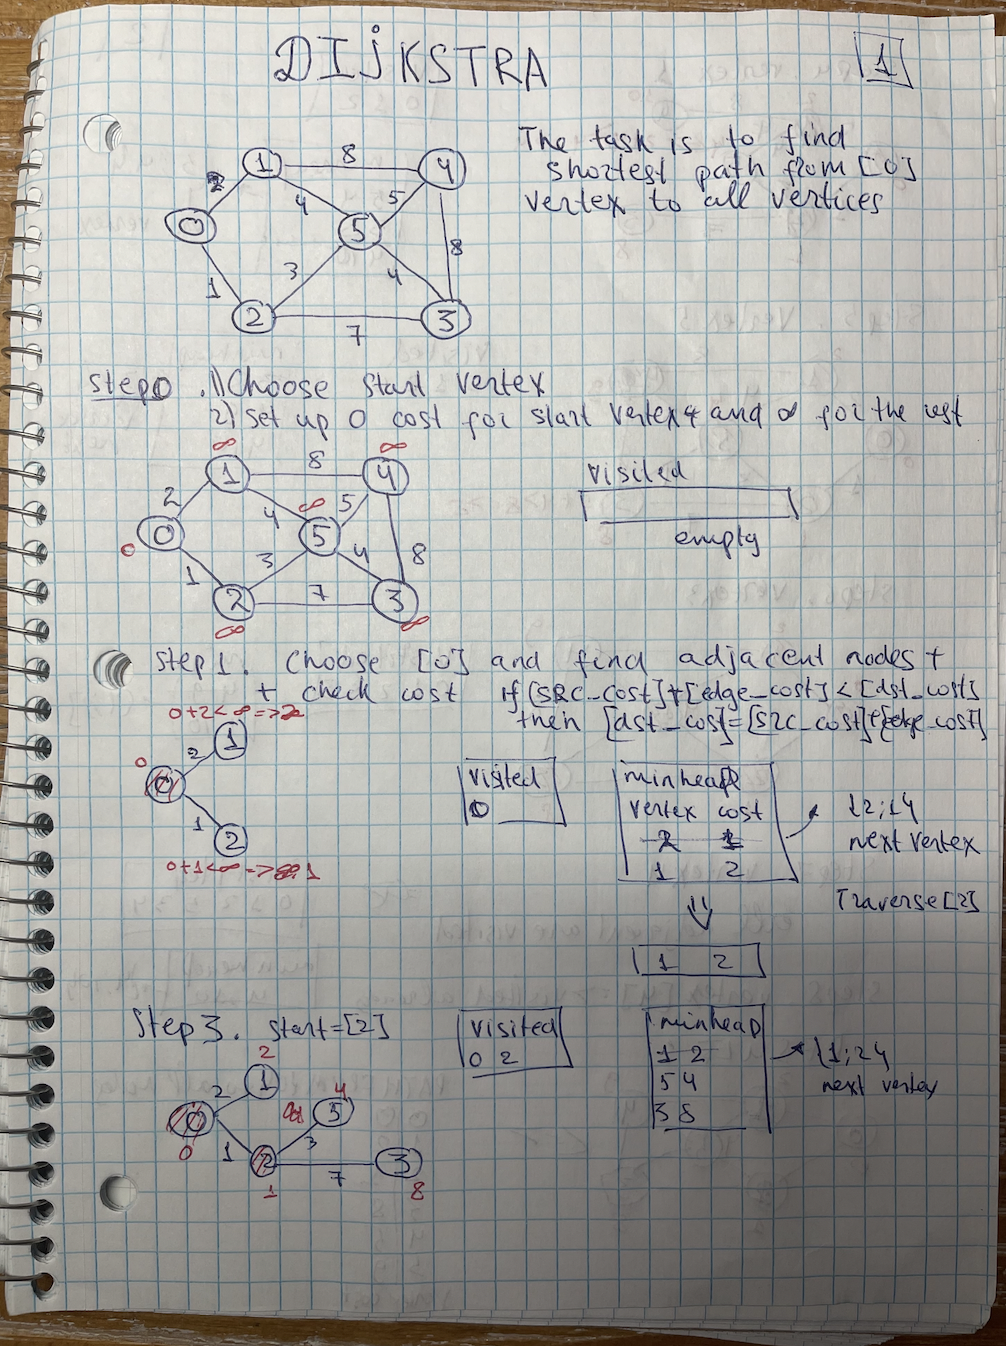 DIJKSTRA
1
The task is to find
shortest path from [0]
vertex to all vertices
1 8 4
2 4 5
0 5 8
1 3 4
2 7 3
step0 .1) Choose start vertex
2) set up 0 cost for start vertex and ∞ for the rest
∞ 8 ∞
1 4
2 4 ∞ 5
0 5
0 1 3 4 8
2 7 3
∞ ∞
visited
empty
Step 1. Choose [0] and find adjacent nodes +
+ check cost if [src_cost]+[edge_cost] < [dst_cost]
then [dst_cost]=[src_cost]+[edge_cost]
0+2<∞=>2
0 2 1
0
1 2
0+1<∞=> 1
visited
0
minheap
vertex cost
2 1
1 2
{2;1}
next vertex
Traverse [2]
1 2
Step 3. start=[2]
2
2 1 4
0 ∞ 5
0 1 3
2 7 3
1 8
visited
0 2
minheap
1 2
5 4
3 8
{1;2}
next vertex